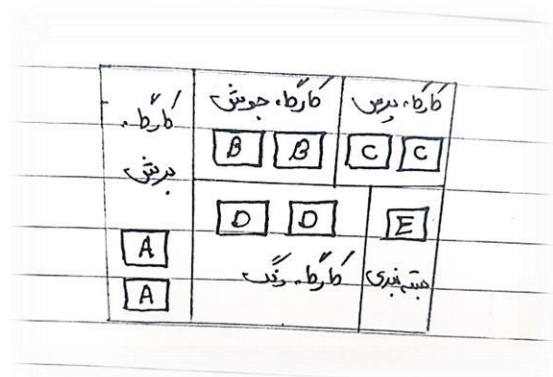 کارگاه
برش
A
A
کارگاه جوش
B B
کارگاه پرس
C C
D D
کارگاه رنگ
E
بسته‌بندی